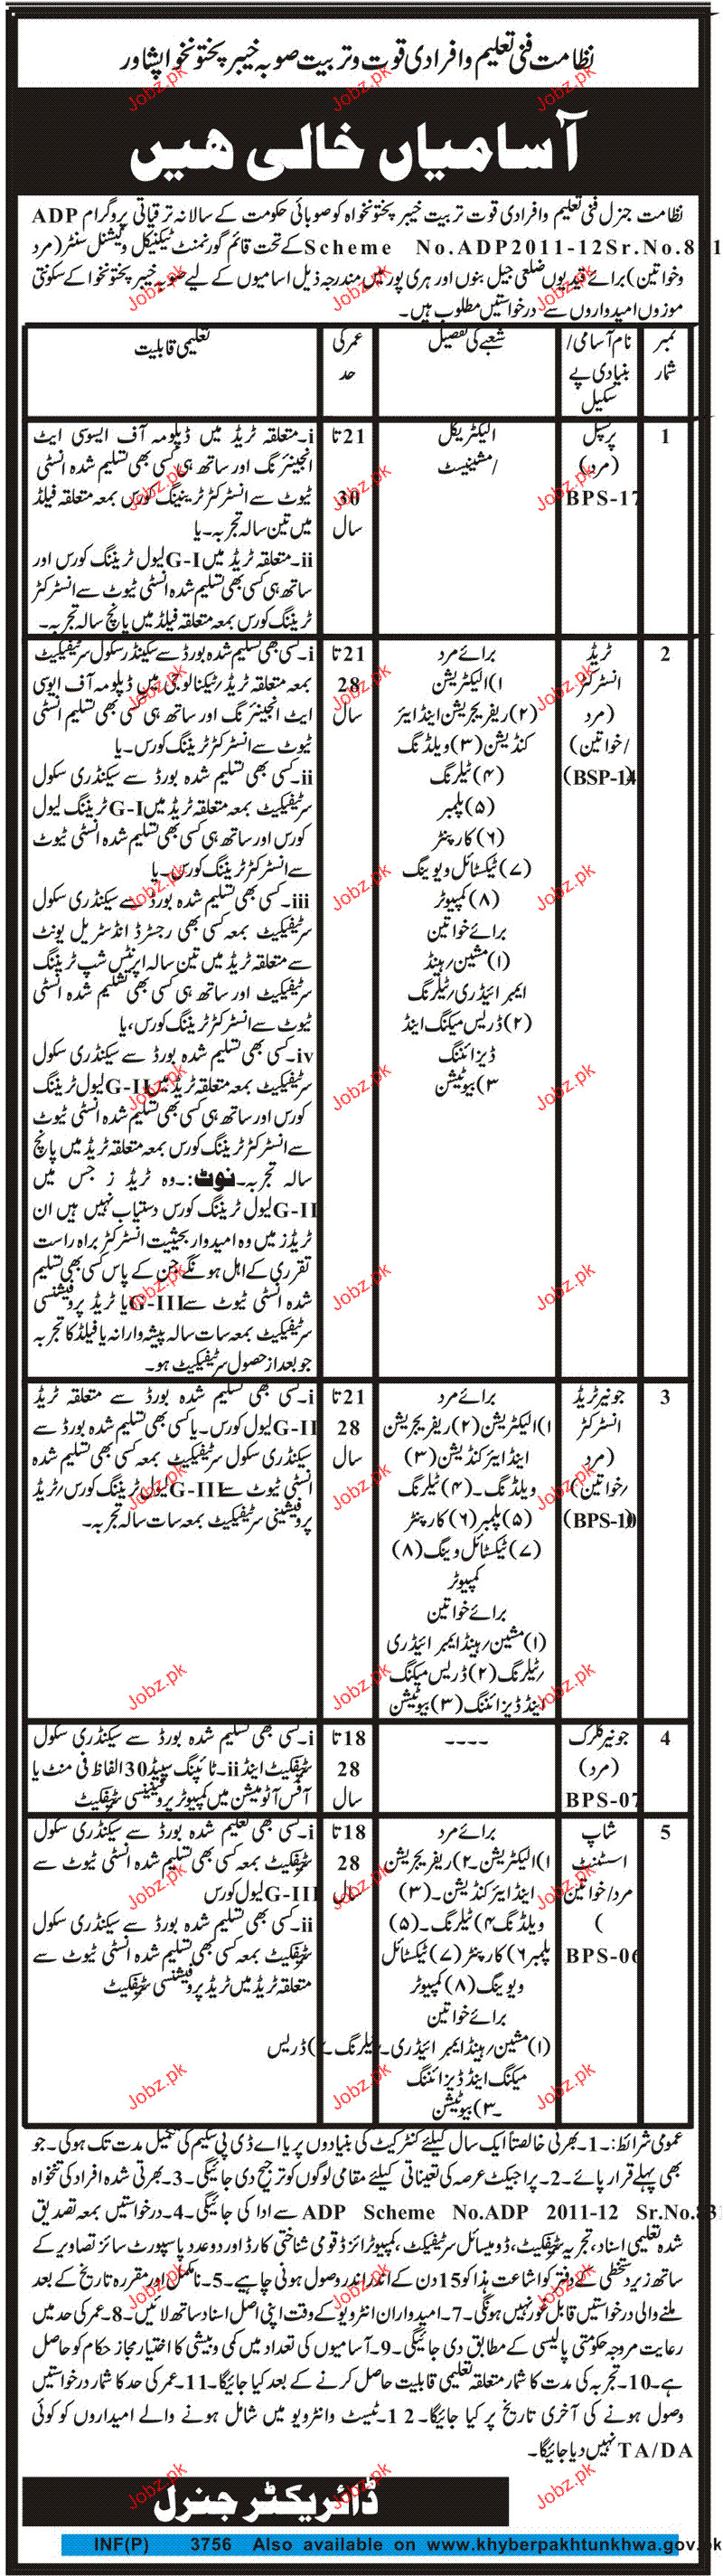 نظامت فنی تعلیم و افرادی قوت و تربیت صوبہ خیبر پختونخوا پشاور
آسامیاں خالی ھیں
نظامت جنرل فنی تعلیم و افرادی قوت تربیت خیبر پختونخواہ کو صوبائی حکومت کے سالانہ ترقیاتی پروگرام ADP
Scheme No.ADP2011-12Sr.No.831 کے تحت قائم گورنمنٹ ٹیکنیکل ووکیشنل سنٹر (مرد
و خواتین) برائے قیدیوں ضلعی جیل بنوں اور ہری پور میں مندرجہ ذیل اسامیوں کے لیے صوبہ خیبر پختونخوا کے سکونتی
موزوں امیدواروں سے درخواستیں مطلوب ہیں۔
نمبر شمار
نام آسامی/ بنیادی پے سکیل
شعبے کی تفصیل
عمر کی حد
تعلیمی قابلیت
1
پرنسپل
(مرد)
BPS-17
الیکٹریکل
/مشینیسٹ
21 تا
30
سال
i۔متعلقہ ٹریڈ میں ڈپلومہ آف ایسوسی ایٹ
انجینئرنگ اور ساتھ ہی کسی بھی تسلیم شدہ انسٹی
ٹیوٹ سے انسٹرکٹر ٹریننگ کورس بمعہ متعلقہ فیلڈ
میں تین سالہ تجربہ۔یا
ii۔متعلقہ ٹریڈ میں G-I لیول ٹریننگ کورس اور
ساتھ ہی کسی بھی تسلیم شدہ انسٹی ٹیوٹ سے انسٹرکٹر
ٹریننگ کورس بمعہ متعلقہ فیلڈ میں پانچ سالہ تجربہ۔
2
ٹریڈ
انسٹرکٹر
(مرد
/خواتین)
(BSP-14)
برائے مرد
۱)الیکٹریشن
(۲)ریفریجریشن اینڈ ایئر
کنڈیشن (۳)ویلڈنگ
(۴)ٹیلرنگ
(۵)پلمبر
(۶)کارپنٹر
(۷)ٹیکسٹائل ویونگ
(۸)کمپیوٹر
برائے خواتین
(۱)مشین/ہینڈ
ایمبرائیڈری/ٹیلرنگ
(۲)ڈریس میکنگ اینڈ
ڈیزائننگ
۳)بیوٹیشن
21 تا
28
سال
i۔کسی بھی تسلیم شدہ بورڈ سے سیکنڈر سکول سرٹیفیکیٹ
بمعہ متعلقہ ٹریڈ/ٹیکنالوجی میں ڈپلومہ آف ایسوسی
ایٹ انجینئرنگ اور ساتھ ہی کسی بھی تسلیم انسٹی
ٹیوٹ سے انسٹرکٹر ٹریننگ کورس۔یا
ii۔کسی بھی تسلیم شدہ بورڈ سے سیکنڈری سکول
سرٹیفیکیٹ بمعہ متعلقہ ٹریڈ میں G-I ٹریننگ لیول
کورس اور ساتھ ہی کسی بھی تسلیم شدہ انسٹی ٹیوٹ
سے انسٹرکٹر ٹریننگ کورس۔یا
iii۔کسی بھی تسلیم شدہ بورڈ سے سیکنڈری سکول
سرٹیفیکیٹ بمعہ کسی بھی رجسٹرڈ انڈسٹریل یونٹ
سے متعلقہ ٹریڈ میں تین سالہ اپرنٹس شپ ٹریننگ
سرٹیفیکیٹ اور ساتھ ہی کسی بھی تسلیم شدہ انسٹی
ٹیوٹ سے انسٹرکٹر ٹریننگ کورس،یا
iv۔کسی بھی تسلیم شدہ بورڈ سے سیکنڈری سکول
سرٹیفیکیٹ بمعہ متعلقہ ٹریڈ میں G-II لیول ٹریننگ
کورس اور ساتھ ہی کسی بھی تسلیم شدہ انسٹی ٹیوٹ
سے انسٹرکٹر ٹریننگ کورس بمعہ متعلقہ ٹریڈ میں پانچ
سالہ تجربہ۔نوٹ:۔وہ ٹریڈ ز جس میں
G-II لیول ٹریننگ کورس دستیاب نہیں ہیں ان
ٹریڈز میں وہ امیدوار بحیثیت انسٹرکٹر براہ راست
تقرری کے اہل ہونگے جن کے پاس کسی بھی تسلیم
شدہ انسٹی ٹیوٹ سے G-III یا ٹریڈ پروفیشنسی
سرٹیفیکیٹ بمعہ سات سالہ پیشہ وارانہ یا فیلڈ کا تجربہ
جو بعد از حصول سرٹیفکیٹ ہو۔
3
جونیر ٹریڈ
انسٹرکٹر
(مرد
/خواتین)
(BPS-10)
برائے مرد
۱)الیکٹریشن (۲)ریفریجریشن
اینڈ ایئر کنڈیشن (۳)
ویلڈنگ۔(۴)ٹیلرنگ
(۵)پلمبر (۶)کارپنٹر
(۷)ٹیکسٹائل وینگ (۸)
کمپیوٹر
برائے خواتین
(۱)مشین/ہینڈ ایمبرائیڈری
/ٹیلرنگ (۲)ڈریس میکنگ
اینڈ ڈیزائننگ (۳)بیوٹیشن
21 تا
28
سال
i۔کسی بھی تسلیم شدہ بورڈ سے متعلقہ ٹریڈ
G-II لیول کورس۔یا کسی بھی تسلیم شدہ بورڈ سے
سیکنڈری سکول سرٹیفکیٹ بمعہ کسی بھی تسلیم شدہ
انسٹی ٹیوٹ سے G-III لیول ٹریننگ کورس/ٹریڈ
پروفیشینی سرٹیفکیٹ بمعہ سات سالہ تجربہ۔
4
جونیر کلرک
(مرد)
BPS-07
----
18 تا
28
سال
i۔کسی بھی تسلیم شدہ بورڈ سے سیکنڈری سکول
سرٹیفکیٹ اینڈ ii۔ٹائپنگ سپیڈ 30 الفاظ فی منٹ یا
آفس آٹومیشن میں کمپیوٹر پروفیشنسی سرٹیفکیٹ
5
شاپ
اسسٹنٹ
مرد/خواتین
(
BPS-06
برائے مرد
۱)الیکٹریشن۔۲)ریفریجریشن
اینڈ ایئر کنڈیشن۔(۳)
ویلڈنگ ۴)ٹیلرنگ۔(۵)
پلمبر ۶)کارپنٹر (۷)ٹیکسٹائل
ویونگ (۸)کمپیوٹر
برائے خواتین
(۱)مشین/ہینڈ ایمبرائیڈری۔ٹیلرنگ۔۲)ڈریس
میکنگ اینڈ ڈیزائننگ
۔۳)بیوٹیشن
18 تا
28
سال
i۔کسی بھی تعلیم شدہ بورڈ سے سیکنڈری سکول
سرٹیفکیٹ بمعہ کسی بھی تسلیم شدہ انسٹی ٹیوٹ سے
G-III لیول کورس
ii۔کسی بھی تسلیم شدہ بورڈ سے سیکنڈری سکول
سرٹیفکیٹ بمعہ کسی بھی تسلیم شدہ انسٹی ٹیوٹ سے
متعلقہ ٹریڈ میں ٹریڈ پروفیشنسی سرٹیفکیٹ
عمومی شرائط:۔1۔بھرتی خالصتاً ایک سال کیلئے کنٹرکیٹ کی بنیادوں پر یا اے ڈی پی سکیم کی تکمیل مدت تک ہوگی۔جو
بھی پہلے قرار پائے۔2۔پراجیکٹ عرصہ کی تعیناتی کیلئے مقامی لوگوں کو ترجیح دی جائیگی۔3۔بھرتی شدہ افراد کی تنخواہ
ADP Scheme No.ADP 2011-12 Sr.No.831 سے ادا کی جائیگی۔4۔درخواستیں بمعہ تصدیق
شدہ تعلیمی اسناد، تجربہ سرٹیفکیٹ، ڈومیسائل سرٹیفکیٹ، کمپیوٹرائزڈ قومی شناختی کارڈ اور دو عدد پاسپورٹ سائز تصاویر کے
ساتھ زیر دستخطی کے دفتر کو اشاعت ہذا کو 15 دن کے اندر اندر وصول ہونی چاہیے۔5۔نامکمل اور مقررہ تاریخ کے بعد
ملنے والی درخواستیں قابل غور نہیں ہونگی۔7۔امیدواران انٹرویو کے وقت اپنی اصل اسناد ساتھ لائیں۔8۔عمر کی حد میں
رعایت مروجہ حکومتی پالیسی کے مطابق دی جائیگی۔9۔آسامیوں کی تعداد میں کمی و بیشی کا اختیار مجاز حکام کو حاصل
ہے۔10۔تجربہ کی مدت کا شمار متعلقہ تعلیمی قابلیت حاصل کرنے کے بعد کیا جائیگا۔11۔عمر کی حد کا شمار درخواستیں
وصول ہونے کی آخری تاریخ پر کیا جائیگا۔12۔ٹیسٹ و انٹرویو میں شامل ہونے والے امیداروں کو کوئی
TA/DA نہیں دیا جائیگا۔
ڈائریکٹر جنرل
INF(P) 3756 Also available on www.khyberpakhtunkhwa.gov.pk